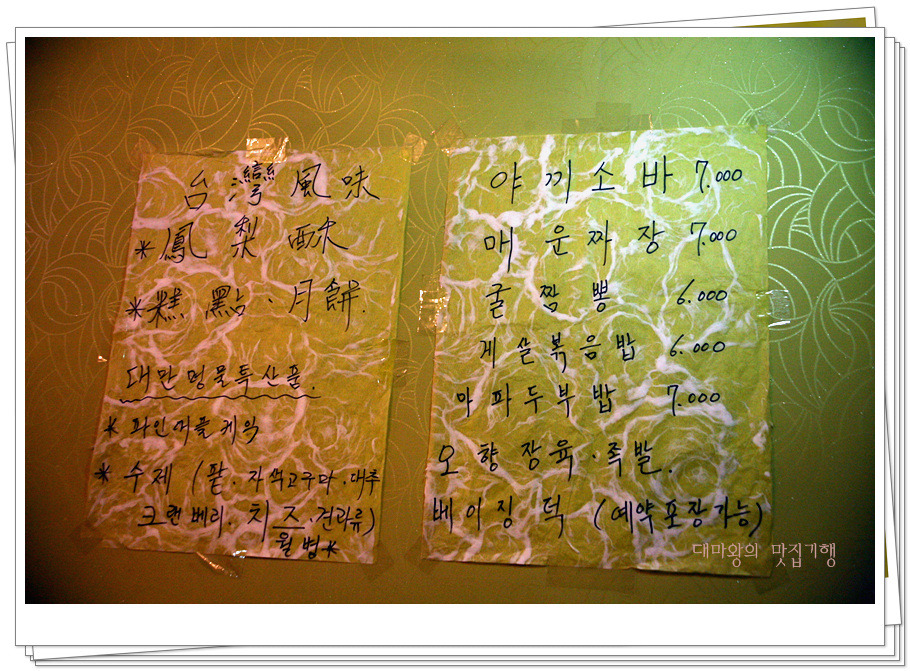 台灣風味
*鳳梨酥
*糕點·月餠.
대만명물특산품.
* 파인애플케익
* 수제 (팥. 자색고구마. 대추
크랜베리. 치즈. 견과류)
월병*
야끼소바 7.000
매운짜장 7.000
굴짬뽕 6.000
게살볶음밥 6.000
마파두부밥 7.000
오향장육·족발.
베이징덕 (예약포장가능)
대마왕의 맛집기행